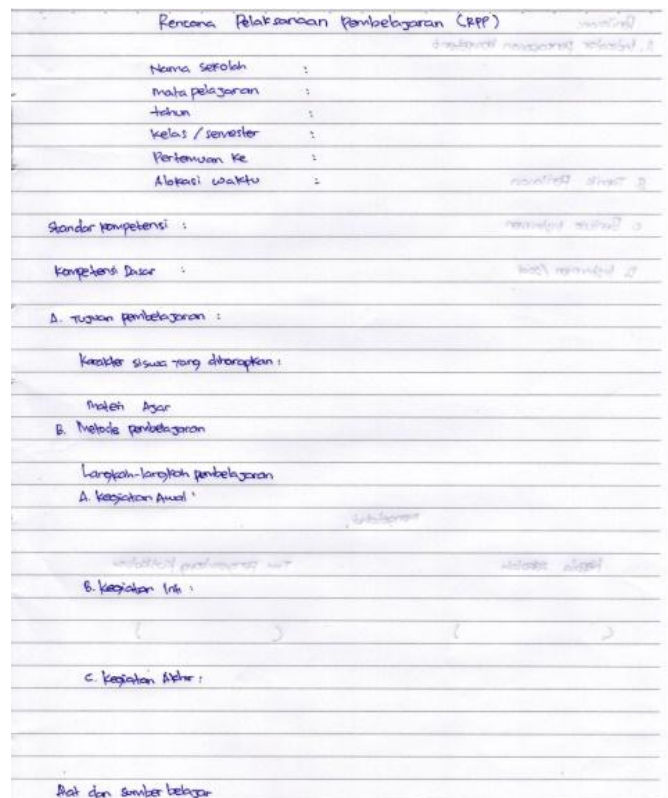 Rencana Pelaksanaan Pembelajaran (RPP)
Nama sekolah :
mata pelajaran :
tahun :
kelas / semester :
Pertemuan ke :
Alokasi waktu :
Standar kompetensi :
Kompetensi Dasar :
A. Tujuan pembelajaran :
Karakter siswa yang diharapkan :
Materi Ajar
B. Metode pembelajaran
Langkah-langkah pembelajaran
A. Kegiatan Awal :
B. Kegiatan Inti :
C. Kegiatan Akhir :
Alat dan sumber belajar